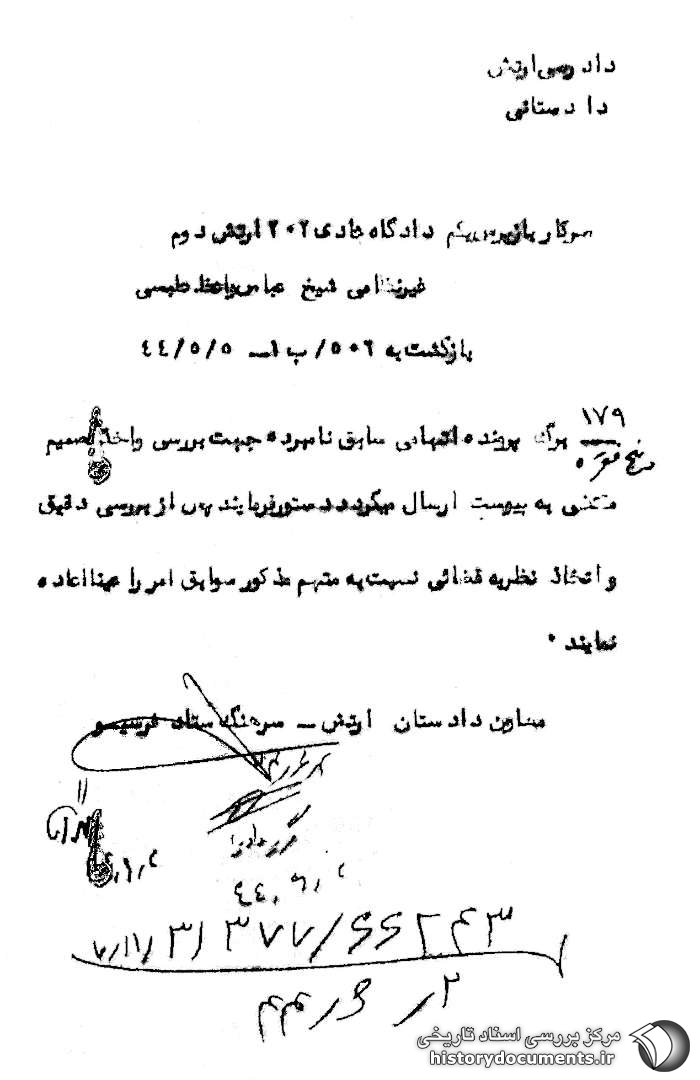 دادرسی ارتش
دادستانی
سرکار بازپرس یکم دادگاه عادی ۲۰۲ ارتش دوم
غیرنظامی شیخ عباس واعظ طبسی
بازگشت به ۵۰۲/ ب ۱ــ ۴۴/۵/۵
۱۷۹
برگ پرونده اتهامی سابق نامبرده جهت بررسی و اخذ تصمیم
مقتضی به پیوست ارسال میگردد دستور فرمایند پس از بررسی دقیق
و اتخاذ نظریه قضائی نسبت به متهم مذکور سوابق امر را عینا اعاده
نمایند ۰
معاون دادستان ارتش ــ سرهنگ ستاد فرسیو
مرکز بررسی اسناد تاریخی
historydocuments.ir